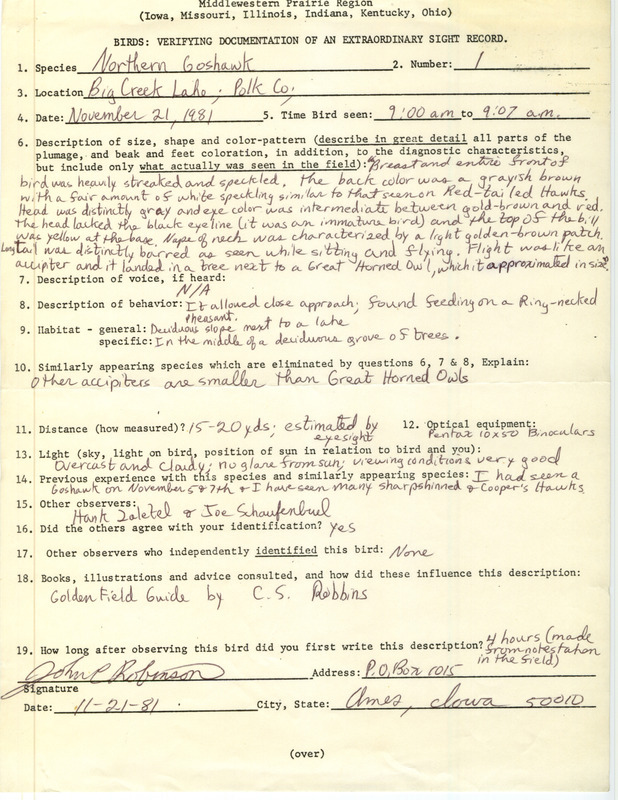 Middlewestern Prairie Region
(Iowa, Missouri, Illinois, Indiana, Kentucky, Ohio)
BIRDS: VERIFYING DOCUMENTATION OF AN EXTRAORDINARY SIGHT RECORD.
1. Species Northern Goshawk 2. Number: 1
3. Location Big Creek Lake; Polk Co;
4. Date: November 21, 1981 5. Time Bird seen: 9:00 am to 9:07 a.m.
6. Description of size, shape and color-pattern (describe in great detail all parts of the
plumage, and beak and feet coloration, in addition, to the diagnostic characteristics,
but include only what actually was seen in the field): Breast and entire front of
bird was heavily streaked and speckled. The back color was a grayish brown
with a fair amount of white speckling similar to that seen on Red-tailed Hawks.
Head was distinctly gray and eye color was intermediate between gold-brown and red.
The head lacked the black eyeline (it was an immature bird) and the top of the bill
was yellow at the base. Nape of neck was characterized by a light golden-brown patch.
Long tail was distinctly barred as seen while sitting and flying. Flight was like an
accipter and it landed in a tree next to a Great Horned Owl, which it approximated in size.
7. Description of voice, if heard:
N/A
8. Description of behavior: It allowed close approach; found feeding on a Ring-necked
Pheasant.
9. Habitat - general: Deciduous slope next to a lake
specific: In the middle of a deciduous grove of trees.
10. Similarly appearing species which are eliminated by questions 6, 7 & 8, Explain:
Other accipiters are smaller than Great Horned Owls
11. Distance (how measured)? 15-20 yds; estimated by 12. Optical equipment:
eyesight Pentax 10x50 Binoculars
13. Light (sky, light on bird, position of sun in relation to bird and you):
Overcast and cloudy; no glare from sun; viewing conditions very good
14. Previous experience with this species and similarly appearing species: I had seen a
Goshawk on November 5 & 7th & I have seen many sharpshinned & Cooper's Hawks
15. Other observers:
Hank Zaletel & Joe Schaufenbuel
16. Did the others agree with your identification? yes
17. Other observers who independently identified this bird: None
18. Books, illustrations and advice consulted, and how did these influence this description:
Golden Field Guide by C. S. Robbins
19. How long after observing this bird did you first write this description? 4 hours (made
from notes taken
in the field)
John P Robinson Address: P.O. Box 1015
Signature
Date: 11-21-81 City, State: Ames, Iowa 50010
(over)